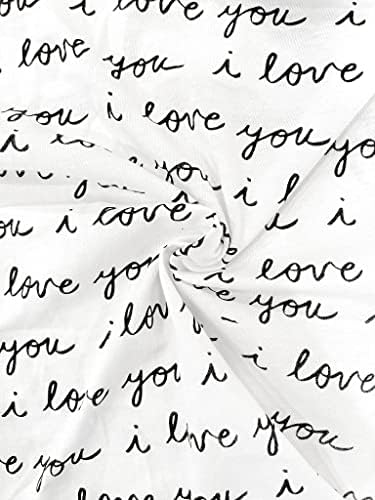 i love you i
love you i love
you i love you
i you you
you i love i l i
love you i love
i love you
you i love
i loe you i i love
i lve you
love you i
love you i